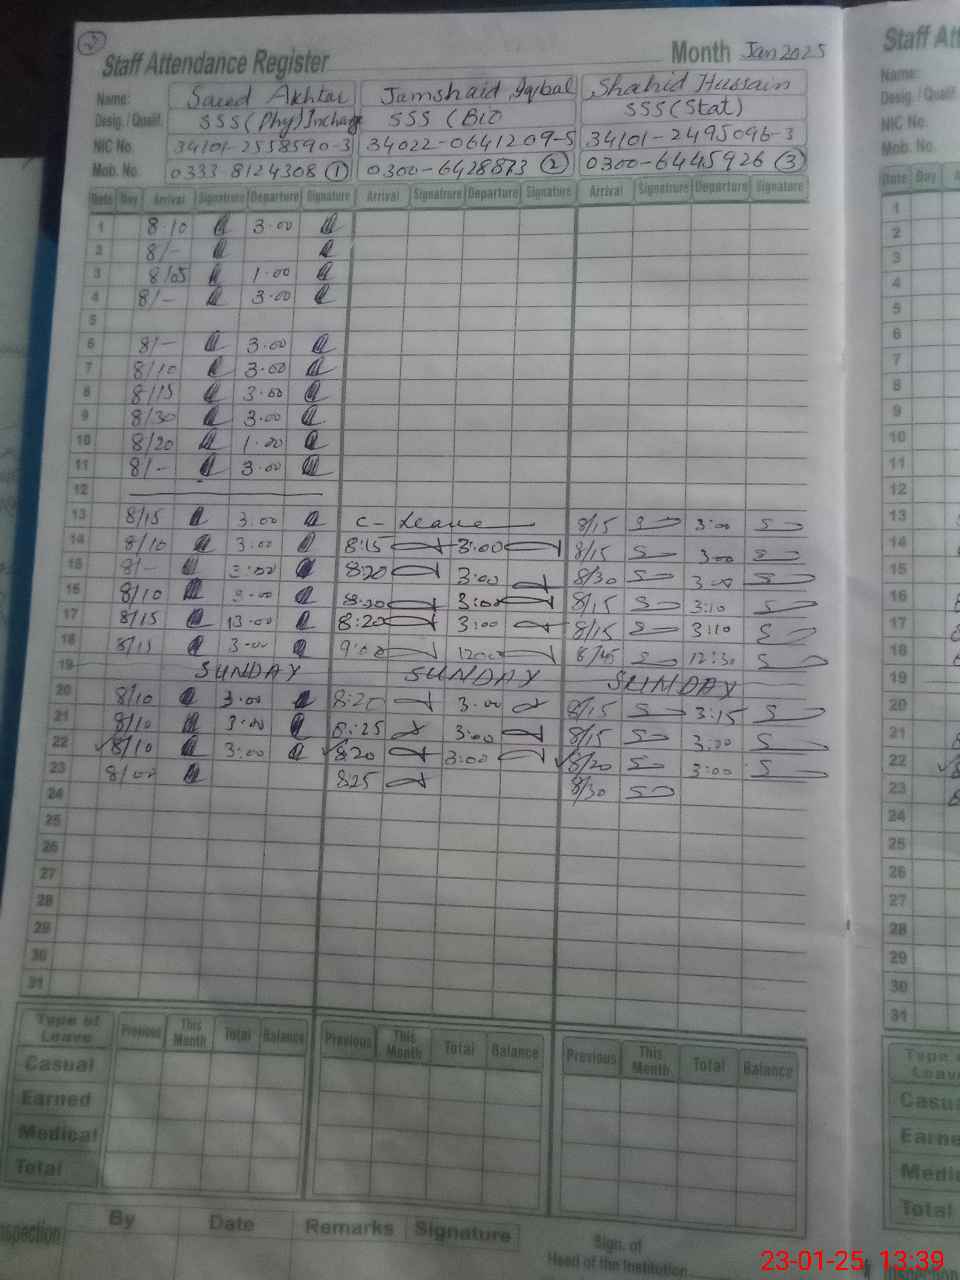 23
Staff Attendance Register Month Jan 2025
Name: Saeed Akhtar Jamshaid Iqbal Shahid Hussain
Desig. / Qualif. SSS (Phy) Incharge SSS (Bio SSS (Stat)
NIC No. 34101-2558590-3 34022-0641209-5 34101-2495096-3
Mob. No. 0333-8124308 1 0300-6428873 2 0300-6445926 3
Date Day Arrival Signatrure Departure Signature Arrival Signatrure Departure Signature Arrival Signatrure Departure Signature
1 8.10 3.00
2 8/-
3 8/05 1.00
4 8/- 3.00
5
6 8/- 3.00
7 8/10 3.00
8 8/15 3.00
9 8/30 3.00
10 8/20 1.00
11 8/- 3.00
12
13 8/15 3.00 C- Leave 8/15 3:00
14 8/10 3:00 8:15 3:00 8/15 300
15 8/- 3:00 8:20 3:00 8/30 3:00
16 8/10 3.00 8:20 3:00 8/15 3:10
17 8/15 13.00 8:20 3:00 8/15 3:10
18 8/15 3.00 9:00 1200 8/45 12:30
19 SUNDAY SUNDAY SUNDAY
20 8/10 3.00 8:20 3:00 8/15 3:15
21 8/10 3:00 8:25 3:00 8/15 3:00
22 8/10 3:00 8:20 3:00 8/20 3:00
23 8/00 825 8/30
24
25
26
27
28
29
30
31
Type of Leave Previous This Month Total Balance Previous This Month Total Balance Previous This Month Total Balance
Casual
Earned
Medical
Total
By Date Remarks Signature
Sign. of
Head of the Institution
Staff Att
Name:
Desig. / Qualif.
NIC No.
Mob. No.
Date Day
1
2
3
4
5
6
7
8
9
10
11
12
13
14
15
16
17
18
19
20
21
22
23
24
25
26
27
28
29
30
31
23-01-25 13:39